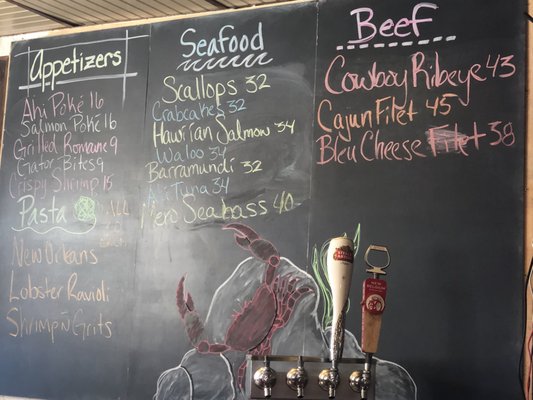 Appetizers
Ahi Poké 16
Salmon Poké 16
Grilled Romaine 9
Gator Bites 9
Crispy Shrimp 15
Pasta
New Orleans
Lobster Ravioli
Shrimp n Grits
Seafood
Scallops 32
Crabcakes 32
Hawiian Salmon 34
Waloo 34
Barramundi 32
Ahi Tuna 34
Nero Seabass 40
Beef
Cowboy Ribeye 43
Cajun Filet 45
Bleu Cheese 38